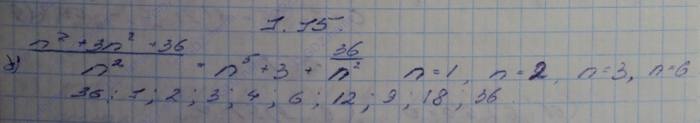 1.15.
б) (n⁷ + 3n² + 36) / n² = n⁵ + 3 + 36/n² n=1, n=2, n=3, n=6
36: 1; 2; 3; 4; 6; 12; 9; 18; 36